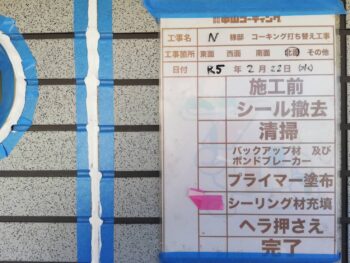 ㈱中山コーティング
工事名 N 様邸 コーキング打ち替え工事
工事箇所 東面 西面 南面 北面 その他
日付 R5 年 2月 22日 (水)
施工前
シール撤去
清掃
バックアップ材 及び
ボンドブレーカー
プライマー塗布
シーリング材充填
ヘラ押さえ
完了